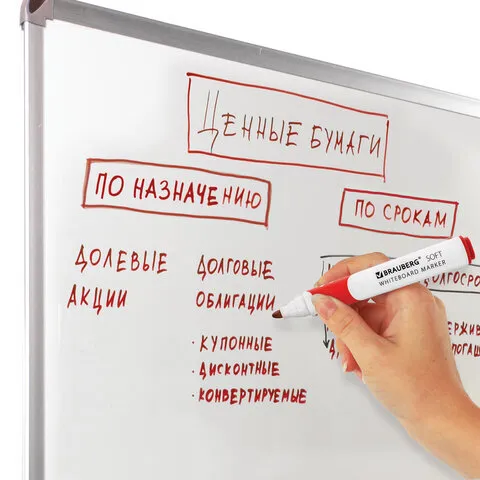 Ценные бумаги
по назначению
по срокам
долевые
акции
долговые
облигации
· купонные
· дисконтные
· конвертируемые
BRAUBERG® SOFT
WHITEBOARD MARKER